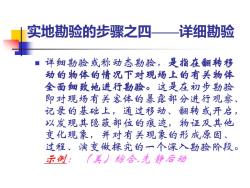 实地勘验的步骤之四——详细勘验
详细勘验或称动态勘验，是指在翻转移
动的物体的情况下对现场上的有关物体
全面细致地进行勘验。这是在初步勘验
即对现场有关客体的暴露部分进行观察、
记录的基础上，通过移动、翻转或开启，
以发现其隐蔽部位的痕迹，物证及其他
变化现象，并对有关现象的形成原因、
过程、演变做探究的一个深入勘验阶段。
示例：（美）综合.先静后动